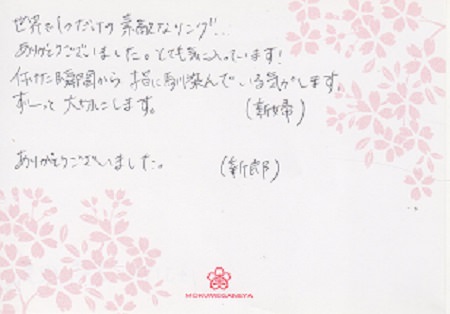 世界で1つだけの素敵なリング!!
ありがとうございました。とても気に入っています!
付けた瞬間から指に馴染んでいる気がします。
ずーっと大切にします。 (新婦)
ありがとうございました。 (新郎)
MOKUMEGANEYA